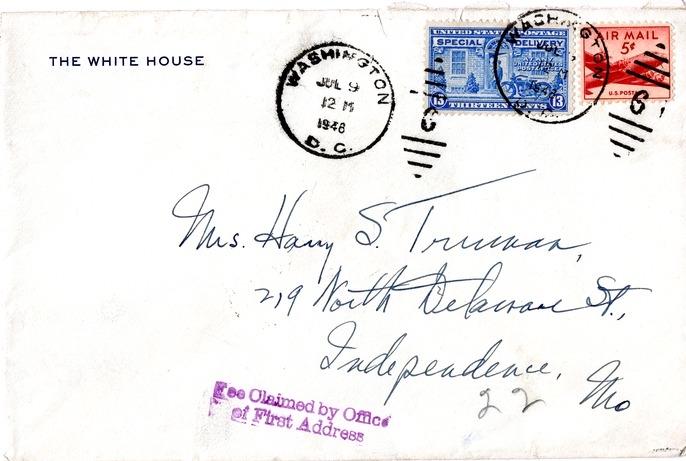 THE WHITE HOUSE
WASHINGTON
JUL 9
12 M
1948
D. C.
UNITED STATES POSTAGE
SPECIAL DELIVERY
13 THIRTEEN CENTS 13
WASHINGTON
AIR MAIL
5¢
U.S. POSTAGE
6
6
Mrs. Harry S. Truman,
219 North Delaware St.,
Independence,
Mo
22
Fee Claimed by Office
of First Address